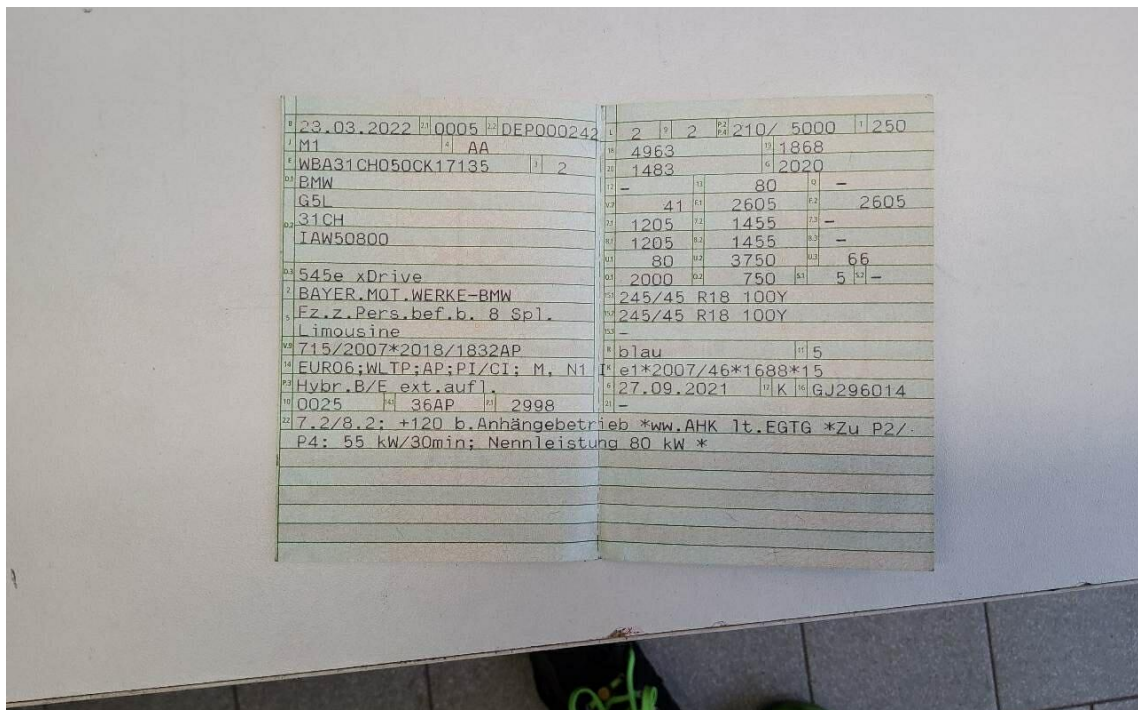 B 23.03.2022 2.1 0005 2.2 DEP000242
J M1 4 AA
E WBA31CH050CK17135 3 2
D.1 BMW
G5L
D.2 31CH
IAW50800
D.3 545e xDrive
2 BAYER.MOT.WERKE-BMW
5 Fz.z.Pers.bef.b. 8 Spl.
Limousine
V.9 715/2007*2018/1832AP
14 EURO6;WLTP;AP;PI/CI; M, N1 I
P.3 Hybr.B/E ext.aufl.
10 0025 14.1 36AP P.1 2998
L 2 9 2 P.2 P.4 210/ 5000 T 250
18 4963 19 1868
20 1483 G 2020
12 – 13 80 Q –
V.7 41 F.1 2605 F.2 2605
7.1 1205 7.2 1455 7.3 –
8.1 1205 8.2 1455 8.3 –
U.1 80 U.2 3750 U.3 66
O.1 2000 O.2 750 S.1 5 S.2 –
15.1 245/45 R18 100Y
15.2 245/45 R18 100Y
15.3 –
R blau 11 5
K e1*2007/46*1688*15
6 27.09.2021 17 K 16 GJ296014
21 –
22 7.2/8.2: +120 b.Anhängebetrieb *ww.AHK lt.EGTG *Zu P2/
P4: 55 kW/30min; Nennleistung 80 kW *